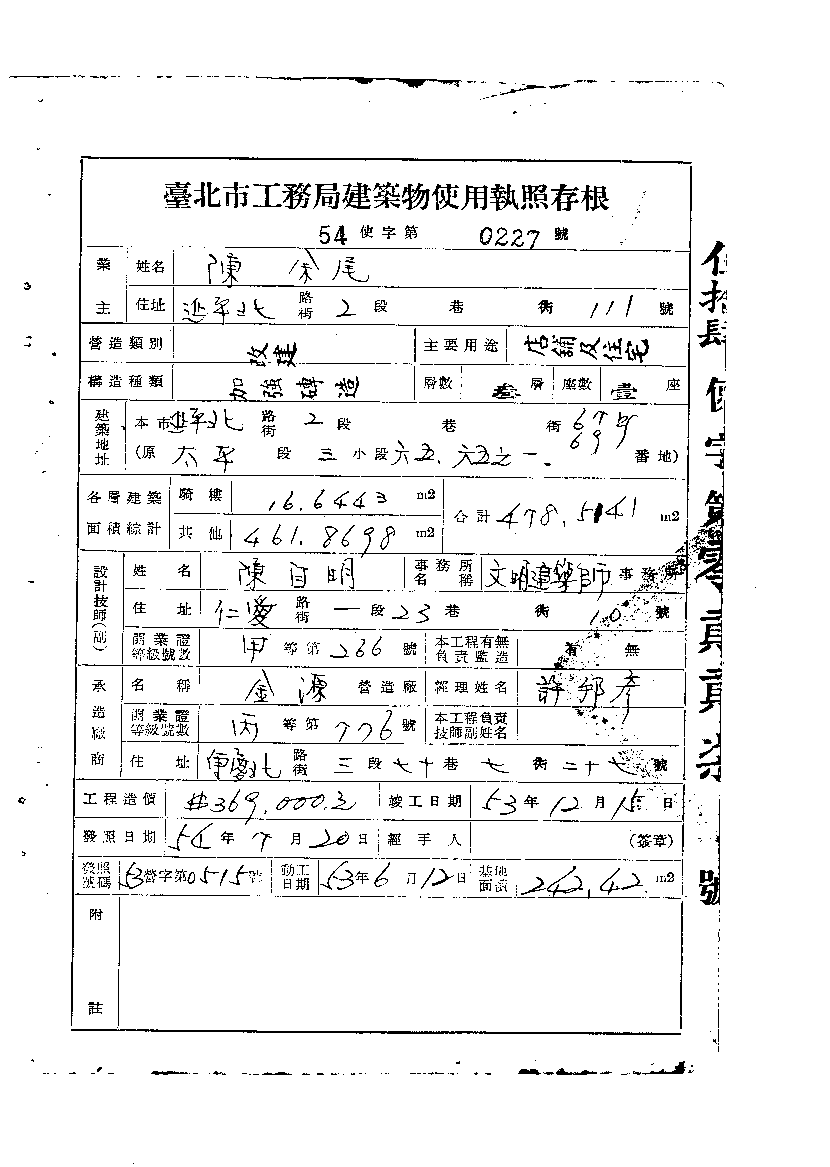 臺北市工務局建築物使用執照存根
54 使字第 0227 號
業主 姓名 陳 尾
住址 延平北 路街 2 段 巷 衖 111 號
營造類別 改建 主要用途 店舖及住宅
構造種類 加強磚造 層數 層 座數 壹 座
建築地址 本市 延平北 路街 2 段 巷 衖 67 69 號
(原 太平 段 三 小段 六五、六五之一 番地)
各層建築面積綜計 騎樓 16.6443 m2 合計 478.5141 m2
其他 461.8698 m2
設計技師(副) 姓名 陳自明 事務所名稱 文明建築師 事務所
住址 仁愛 路街 一 段 23 巷 衖 10 號
開業證等級號數 甲 等第 266 號 本工程有無負責監造 有 無
承造廠商 名稱 金源 營造廠 經理姓名 許邦彥
開業證等級號數 丙 等第 776 號 本工程負責技師副姓名
住址 北 路街 三 段 七十 巷 七 衖 二十七 號
工程造價 #369,000.2 竣工日期 53 年 12 月 15 日
發照日期 54 年 7 月 20 日 經手人 (簽章)
發照號碼 53 營字第 0515 號 動工日期 53 年 6 月 12 日 基地面積 242.42 m2
附註
伍拾肆 使字第零貳貳柒 號